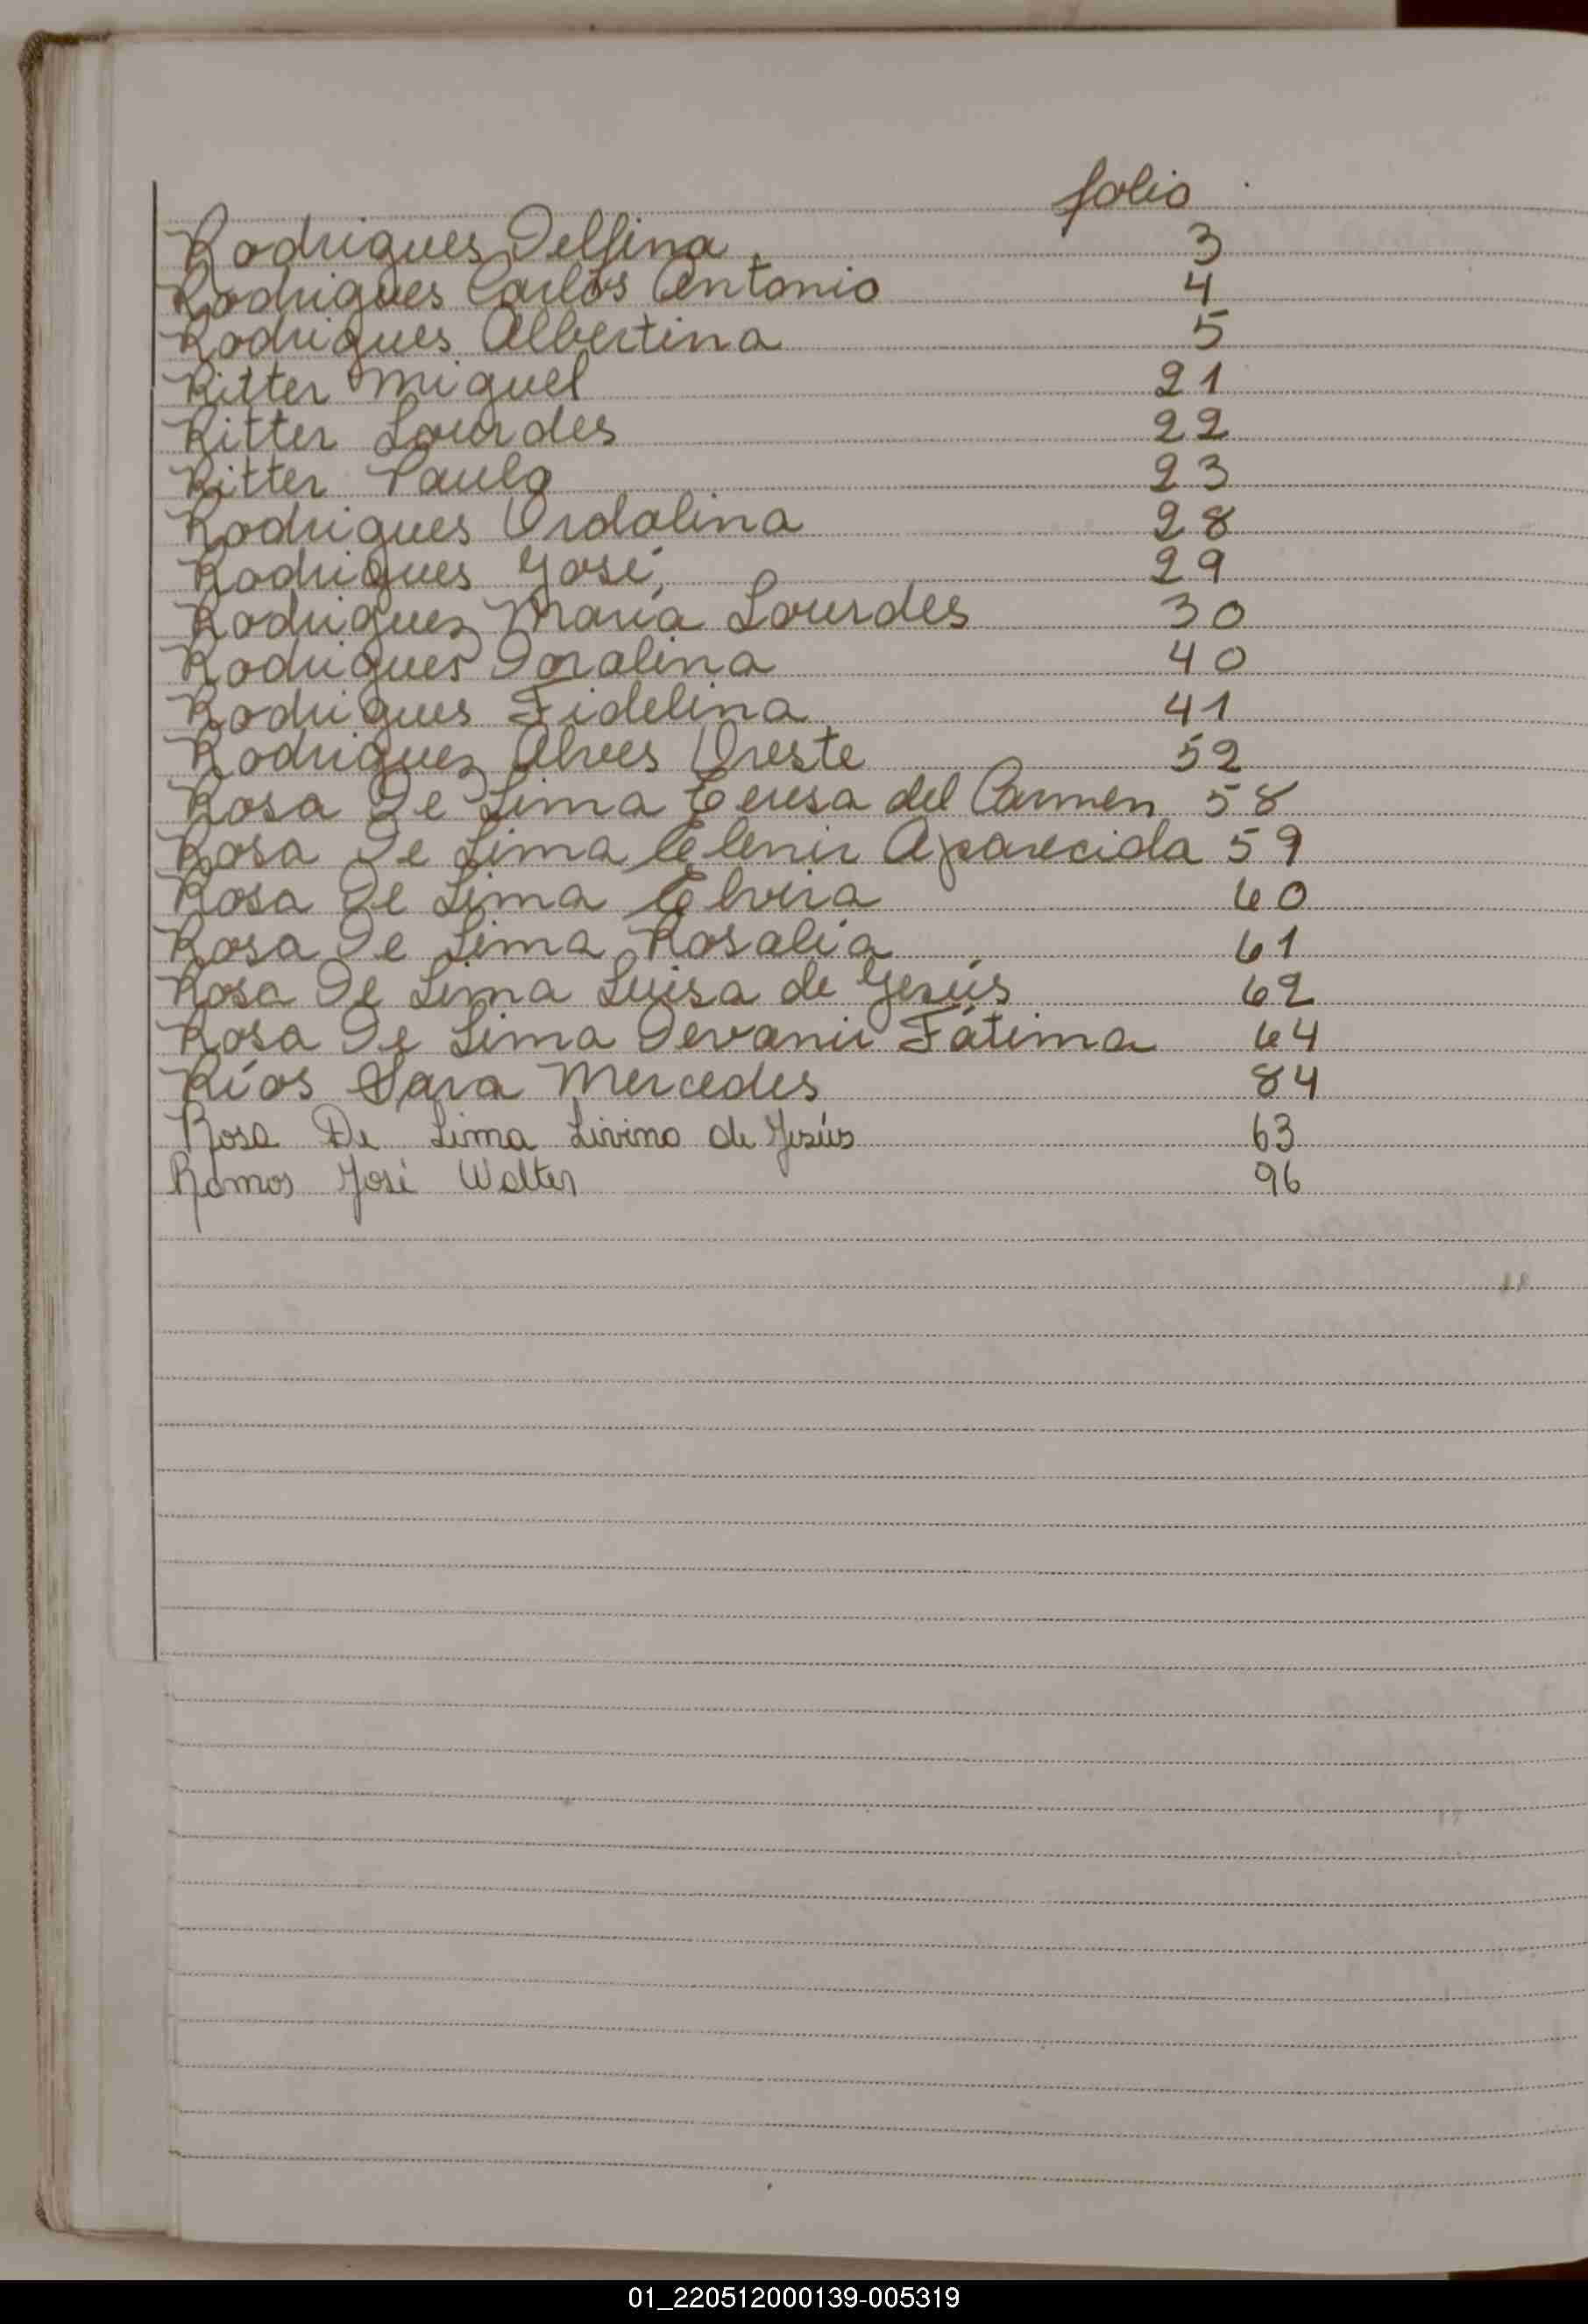 folio
Rodrigues Delfina 3
Rodrigues Carlos Antonio 4
Rodrigues Albertina 5
Ritter Miguel 21
Ritter Lourdes 22
Ritter Paulo 23
Rodrigues Ordalina 28
Rodrigues José 29
Rodriguez María Lourdes 30
Rodrigues Doralina 40
Rodrigues Fidelina 41
Rodriguez Alves Oreste 52
Rosa De Lima Teresa del Carmen 58
Rosa De Lima Elenir Aparecida 59
Rosa De Lima Elvira 60
Rosa De Lima Rosalía 61
Rosa De Lima Luisa de Jesús 62
Rosa De Lima Devanir Fátima 64
Ríos Sara Mercedes 84
Rosa De Lima Livino de Jesús 63
Ramos José Walter 96
01_220512000139-005319